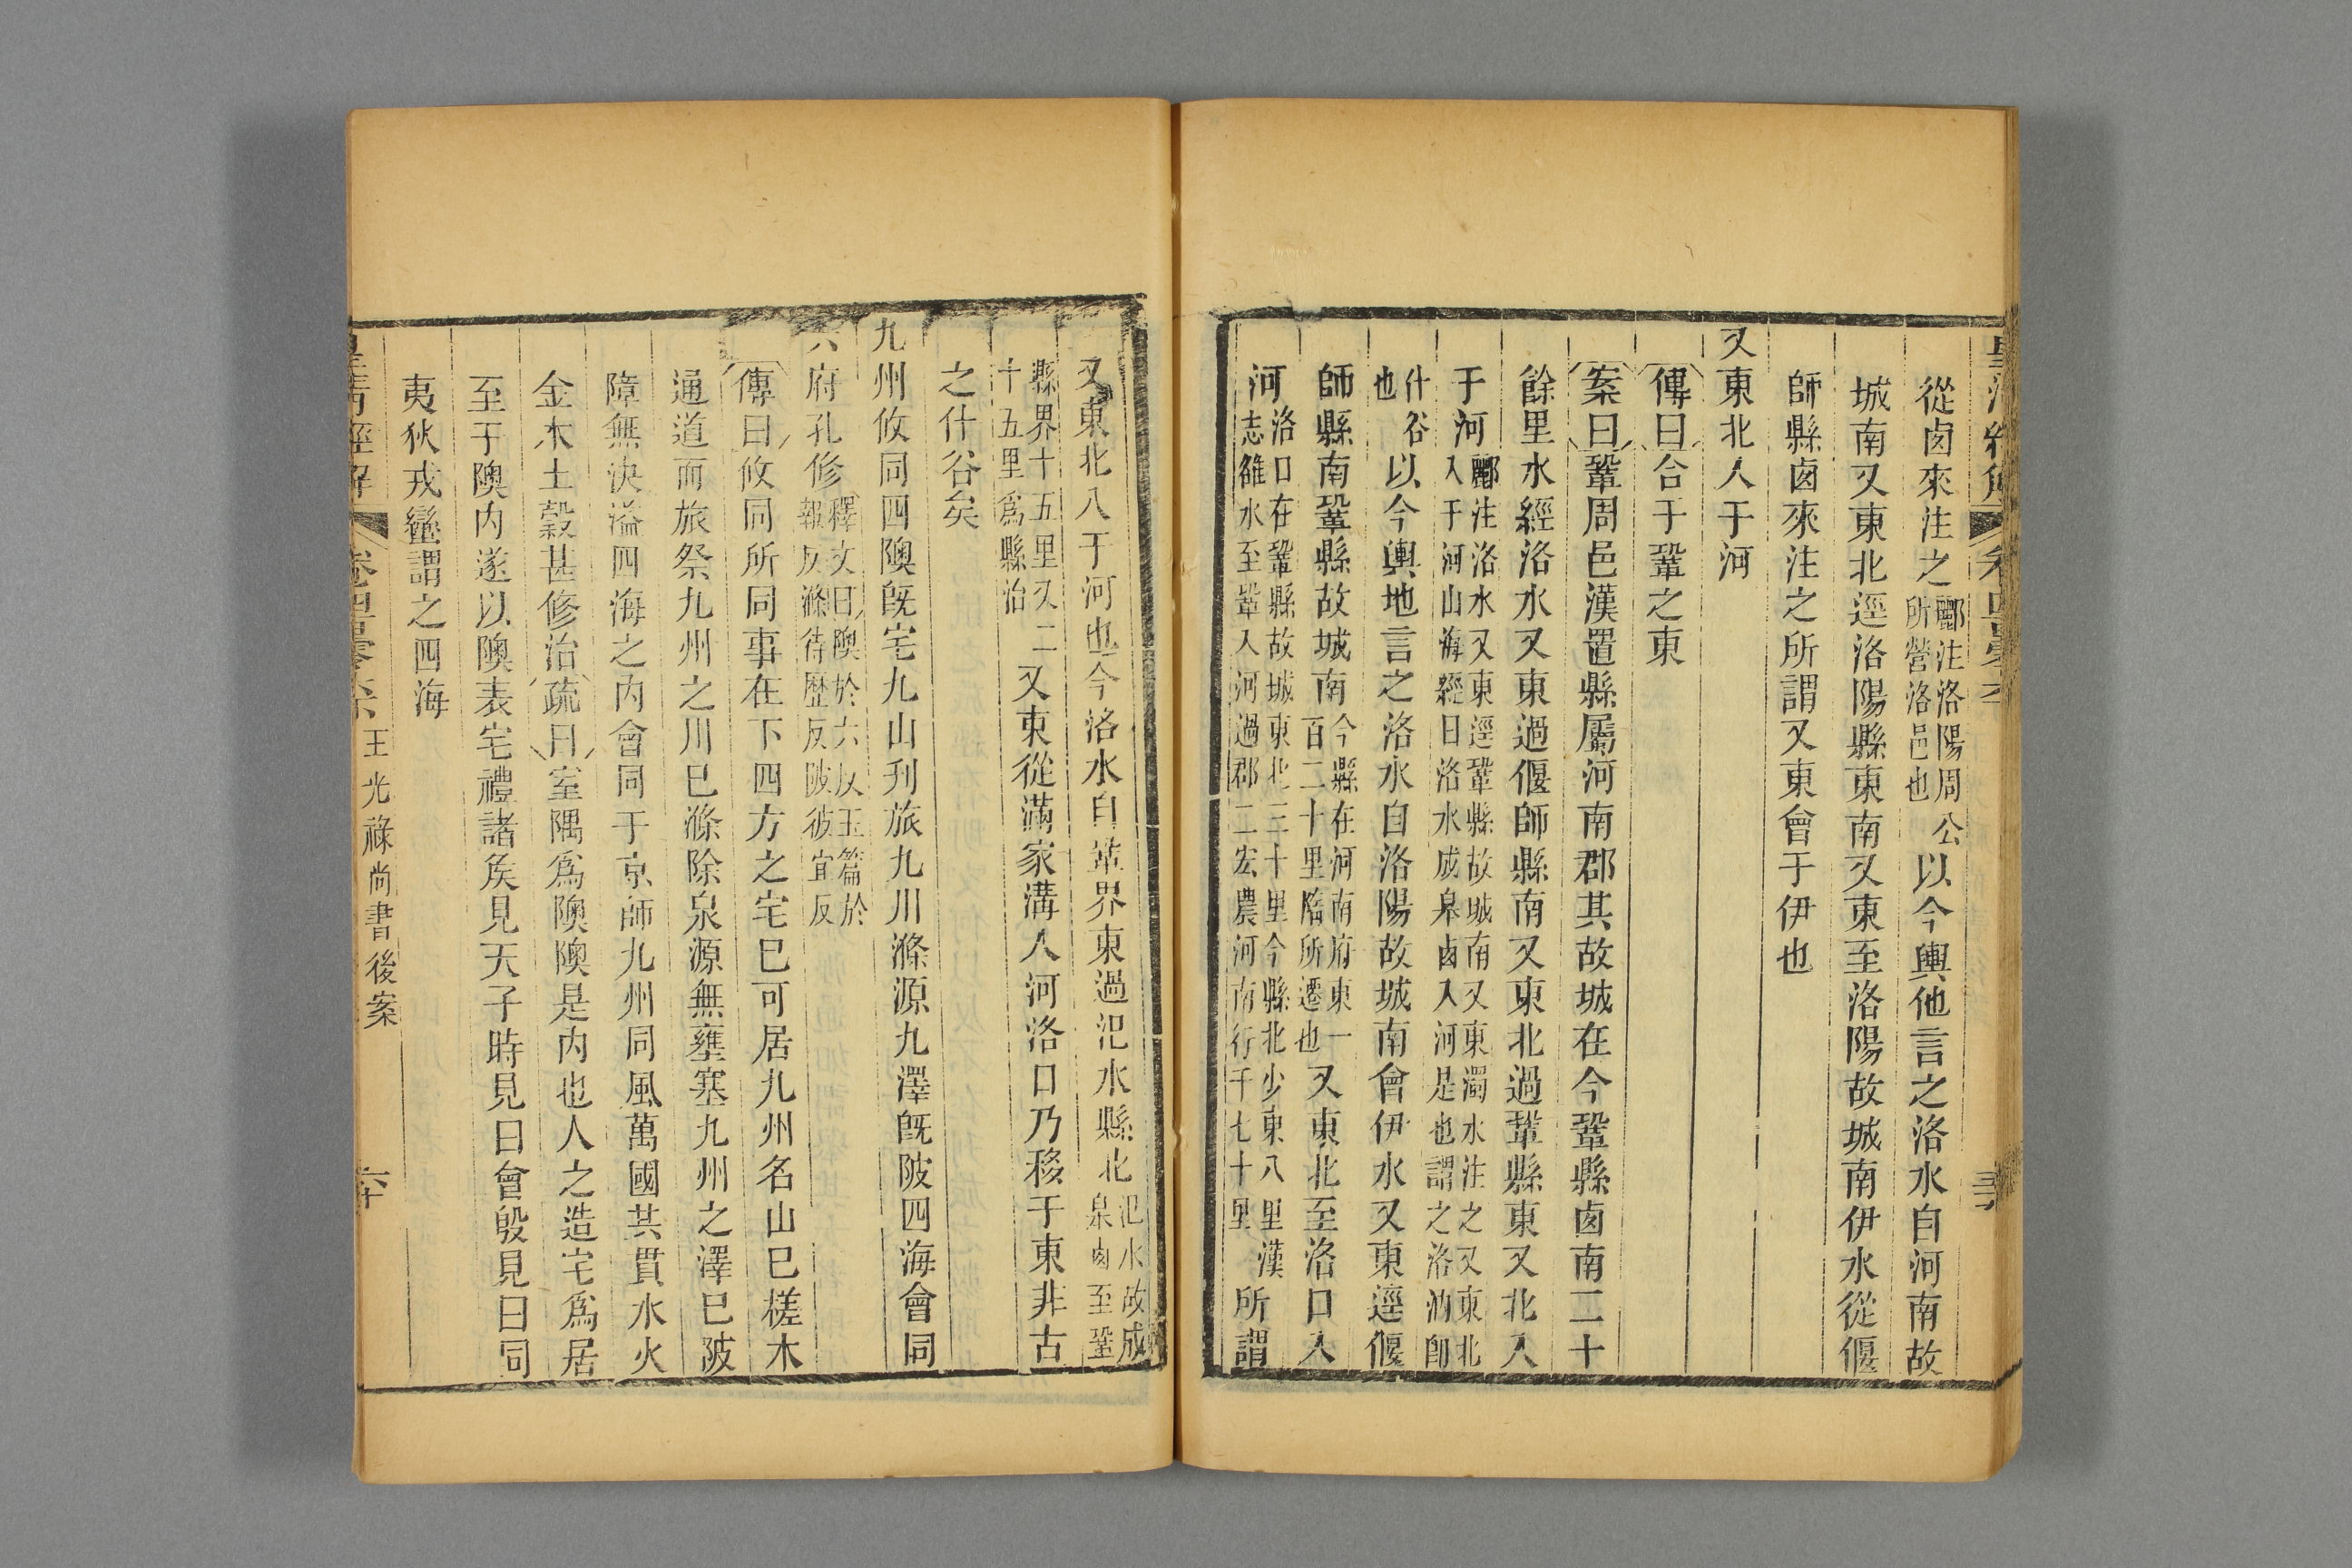 從鹵來注之酈注洛陽周公所營洛邑也以今輿他言之洛水自河南故
城南又東北逕洛陽縣東南又東至洛陽故城南伊水從偃
師縣鹵來注之所謂又東會于伊也
又東北入于河
傳曰合于鞏之東
案曰鞏周邑漢置縣屬河南郡其故城在今鞏縣鹵南二十
餘里水經洛水又東過偃師縣南又東北過鞏縣東又北入
于河酈注洛水又東逕鞏縣故城南又東濁水注之又東北入于河山海經曰洛水成皋鹵入河是也謂之洛汭卽
什谷也以今輿地言之洛水自洛陽故城南會伊水又東逕偃
師縣南鞏縣故城南今縣在河南府東一百二十里隋所遷也又東北至洛口入
河洛口在鞏縣故城東北三十里今縣北少東八里漢志雒水至鞏入河過郡二宏農河南行千七十里所謂
又東北入于河也今洛水自鞏界東過汜水縣北汜水故成皋鹵至鞏
縣界十五里又二十五里爲縣治又東從滿家溝入河洛口乃移于東非古
之什谷矣
九州攸同四隩旣宅九山刋旅九川滌源九澤旣陂四海會同
六府孔修釋文曰隩於六反玉篇於報反滌待歷反陂彼宜反
傳曰攸同所同事在下四方之宅已可居九州名山已槎木
通道而旅祭九州之川已滌除泉源無壅塞九州之澤已陂
障無決溢四海之內會同于京師九州同風萬國共貫水火
金木土穀甚修治疏曰室隅爲隩隩是內也人之造宅爲居
至于隩內遂以隩表宅禮諸矦見天子時見曰會殷見曰同
夷狄戎蠻謂之四海
皇淸經解 卷四百零六 王光祿尚書後案 六十